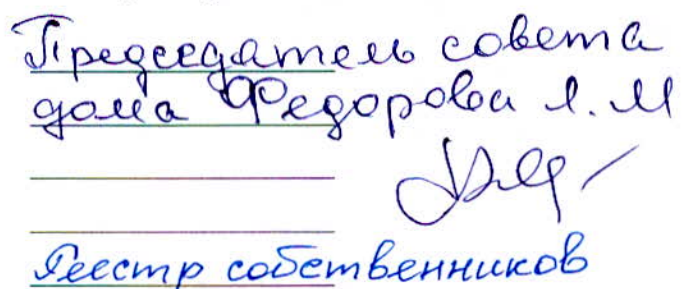 Председатель совета
дома Федорова Л. М
Реестр собственников